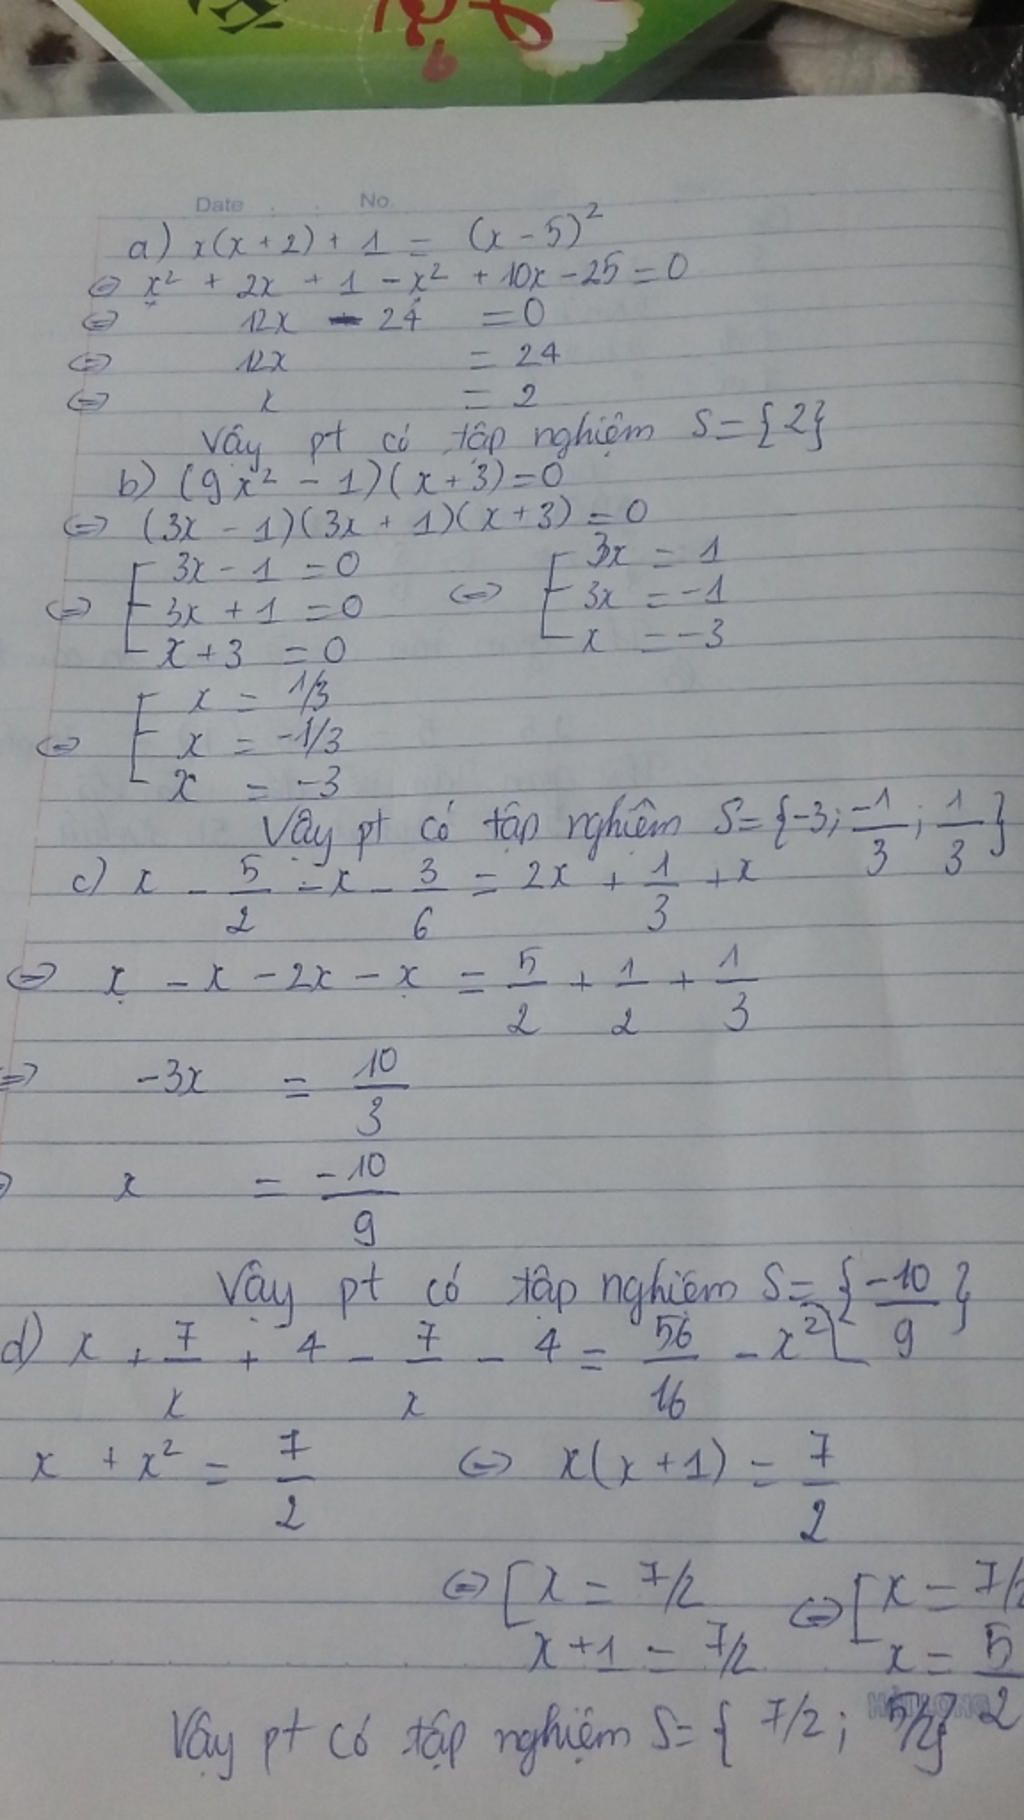 Date No.
a) x(x + 2) + 1 = (x - 5)²
⇔ x² + 2x + 1 - x² + 10x - 25 = 0
⇔ 12x - 24 = 0
⇔ 12x = 24
⇔ x = 2
Vậy pt có tập nghiệm S = {2}
b) (9x² - 1)(x + 3) = 0
⇔ (3x - 1)(3x + 1)(x + 3) = 0
⇔ [ 3x - 1 = 0 ⇔ [ 3x = 1
3x + 1 = 0 3x = -1
x + 3 = 0 x = -3
⇔ [ x = 1/3
x = -1/3
x = -3
Vậy pt có tập nghiệm S = {-3; -1/3; 1/3}
c) x - 5/2 - x - 3/6 = 2x + 1/3 + x
⇔ x - x - 2x - x = 5/2 + 1/2 + 1/3
⇔ -3x = 10/3
x = -10/9
Vậy pt có tập nghiệm S = {-10/9}
d) x + 7/x + 4 - 7/x - 4 = 56/16 - x²
x + x² = 7/2 ⇔ x(x + 1) = 7/2
⇔ [ x = 7/2 ⇔ [ x = 7/2
x + 1 = 7/2 x = 5/2
Vậy pt có tập nghiệm S = { 7/2; 5/2}